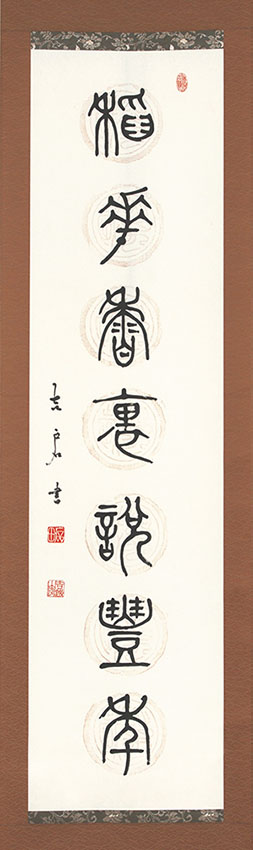 稻花香裏說豐年
書